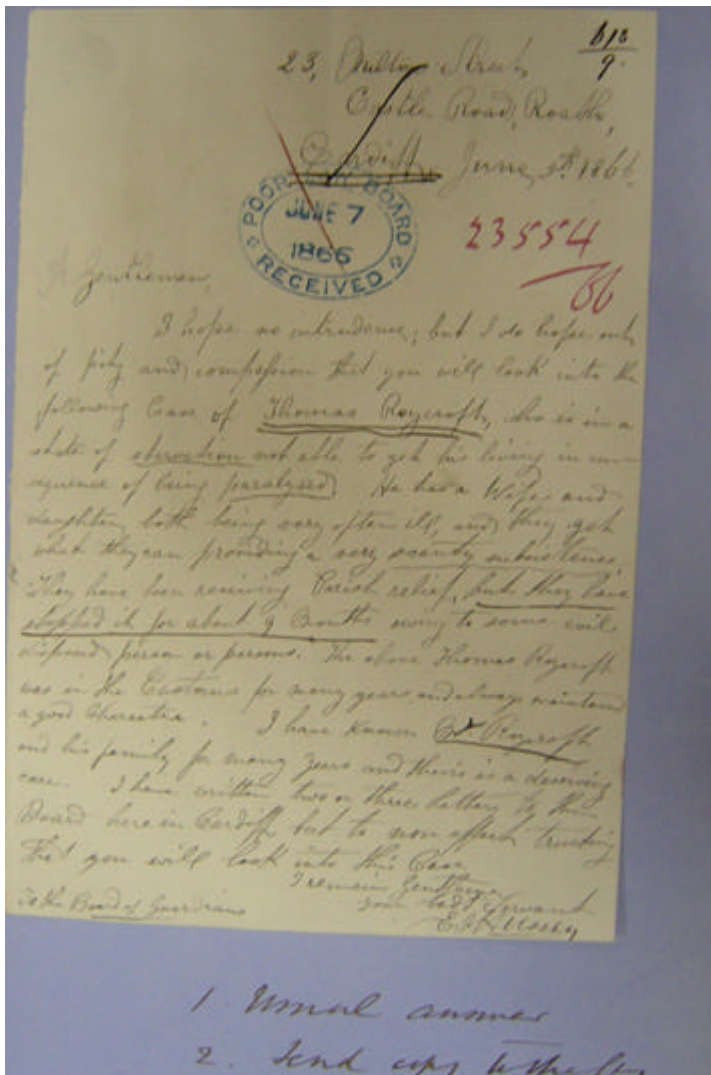 b 18
9.
23, Street
Castle Road, Roath,
Cardiff, June 5th 1866
POOR LAW BOARD
JUNE 7
1866
RECEIVED
23554
66
Gentlemen,
I hope no intrudence; but I do hope out
of pity and compassion that you will look into the
following Case of Thomas Roycroft, who is in a
state of starvation not able to get his living in con-
sequence of being paralyzed. He has a Wife and
daughter, both being very often ill, and they get
what they can providing a very scanty subsistence.
They have been receiving Parish relief, but they have
stopped it for about 9 Months owing to some evil
disposed person or persons. The above Thomas Roycroft
was in the Customs for many years and always maintained
a good Character. I have known Roycroft
and his family for many years and theirs is a deserving
case. I have written two or three letters to the
Board here in Cardiff, but to non effect, trusting
that you will look into this Case
I remain Gentlemen
your Obdt Servant
To the Board of Guardians
1. Usual answer
2. Send copy to the